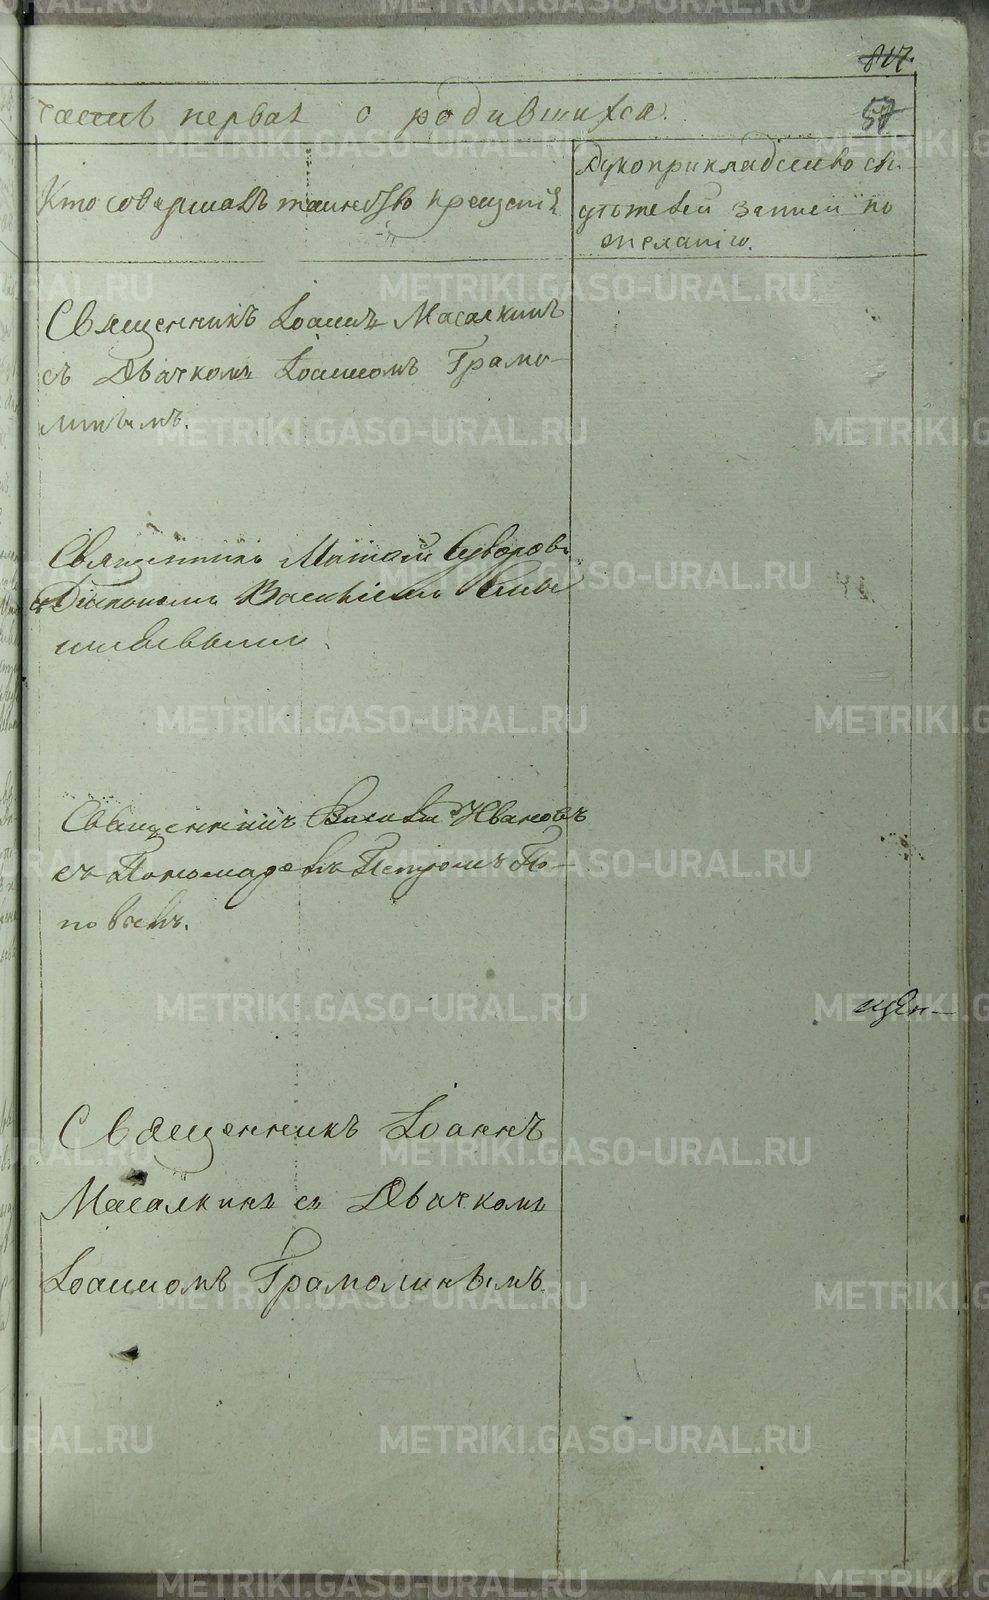 817.
57
часть первая о родившихся.
Кто совершалъ таинство крещенія
Рукоприкладство сви
дѣтелей записи по
желанію.
Священникъ Іоаннъ Масалкинъ
съ Дьячкомъ Іоанномъ Грамо-
линымъ.
Священникъ Матѳей Суворовъ
съ Діакономъ Василіемъ
Священникъ Василій Ивановъ
съ Пономаремъ Петромъ По-
повымъ.
Священникъ Іоаннъ
Масалкинъ съ Дьячкомъ
Іоанномъ Грамолинымъ.
METRIKI.GASO-URAL.RU